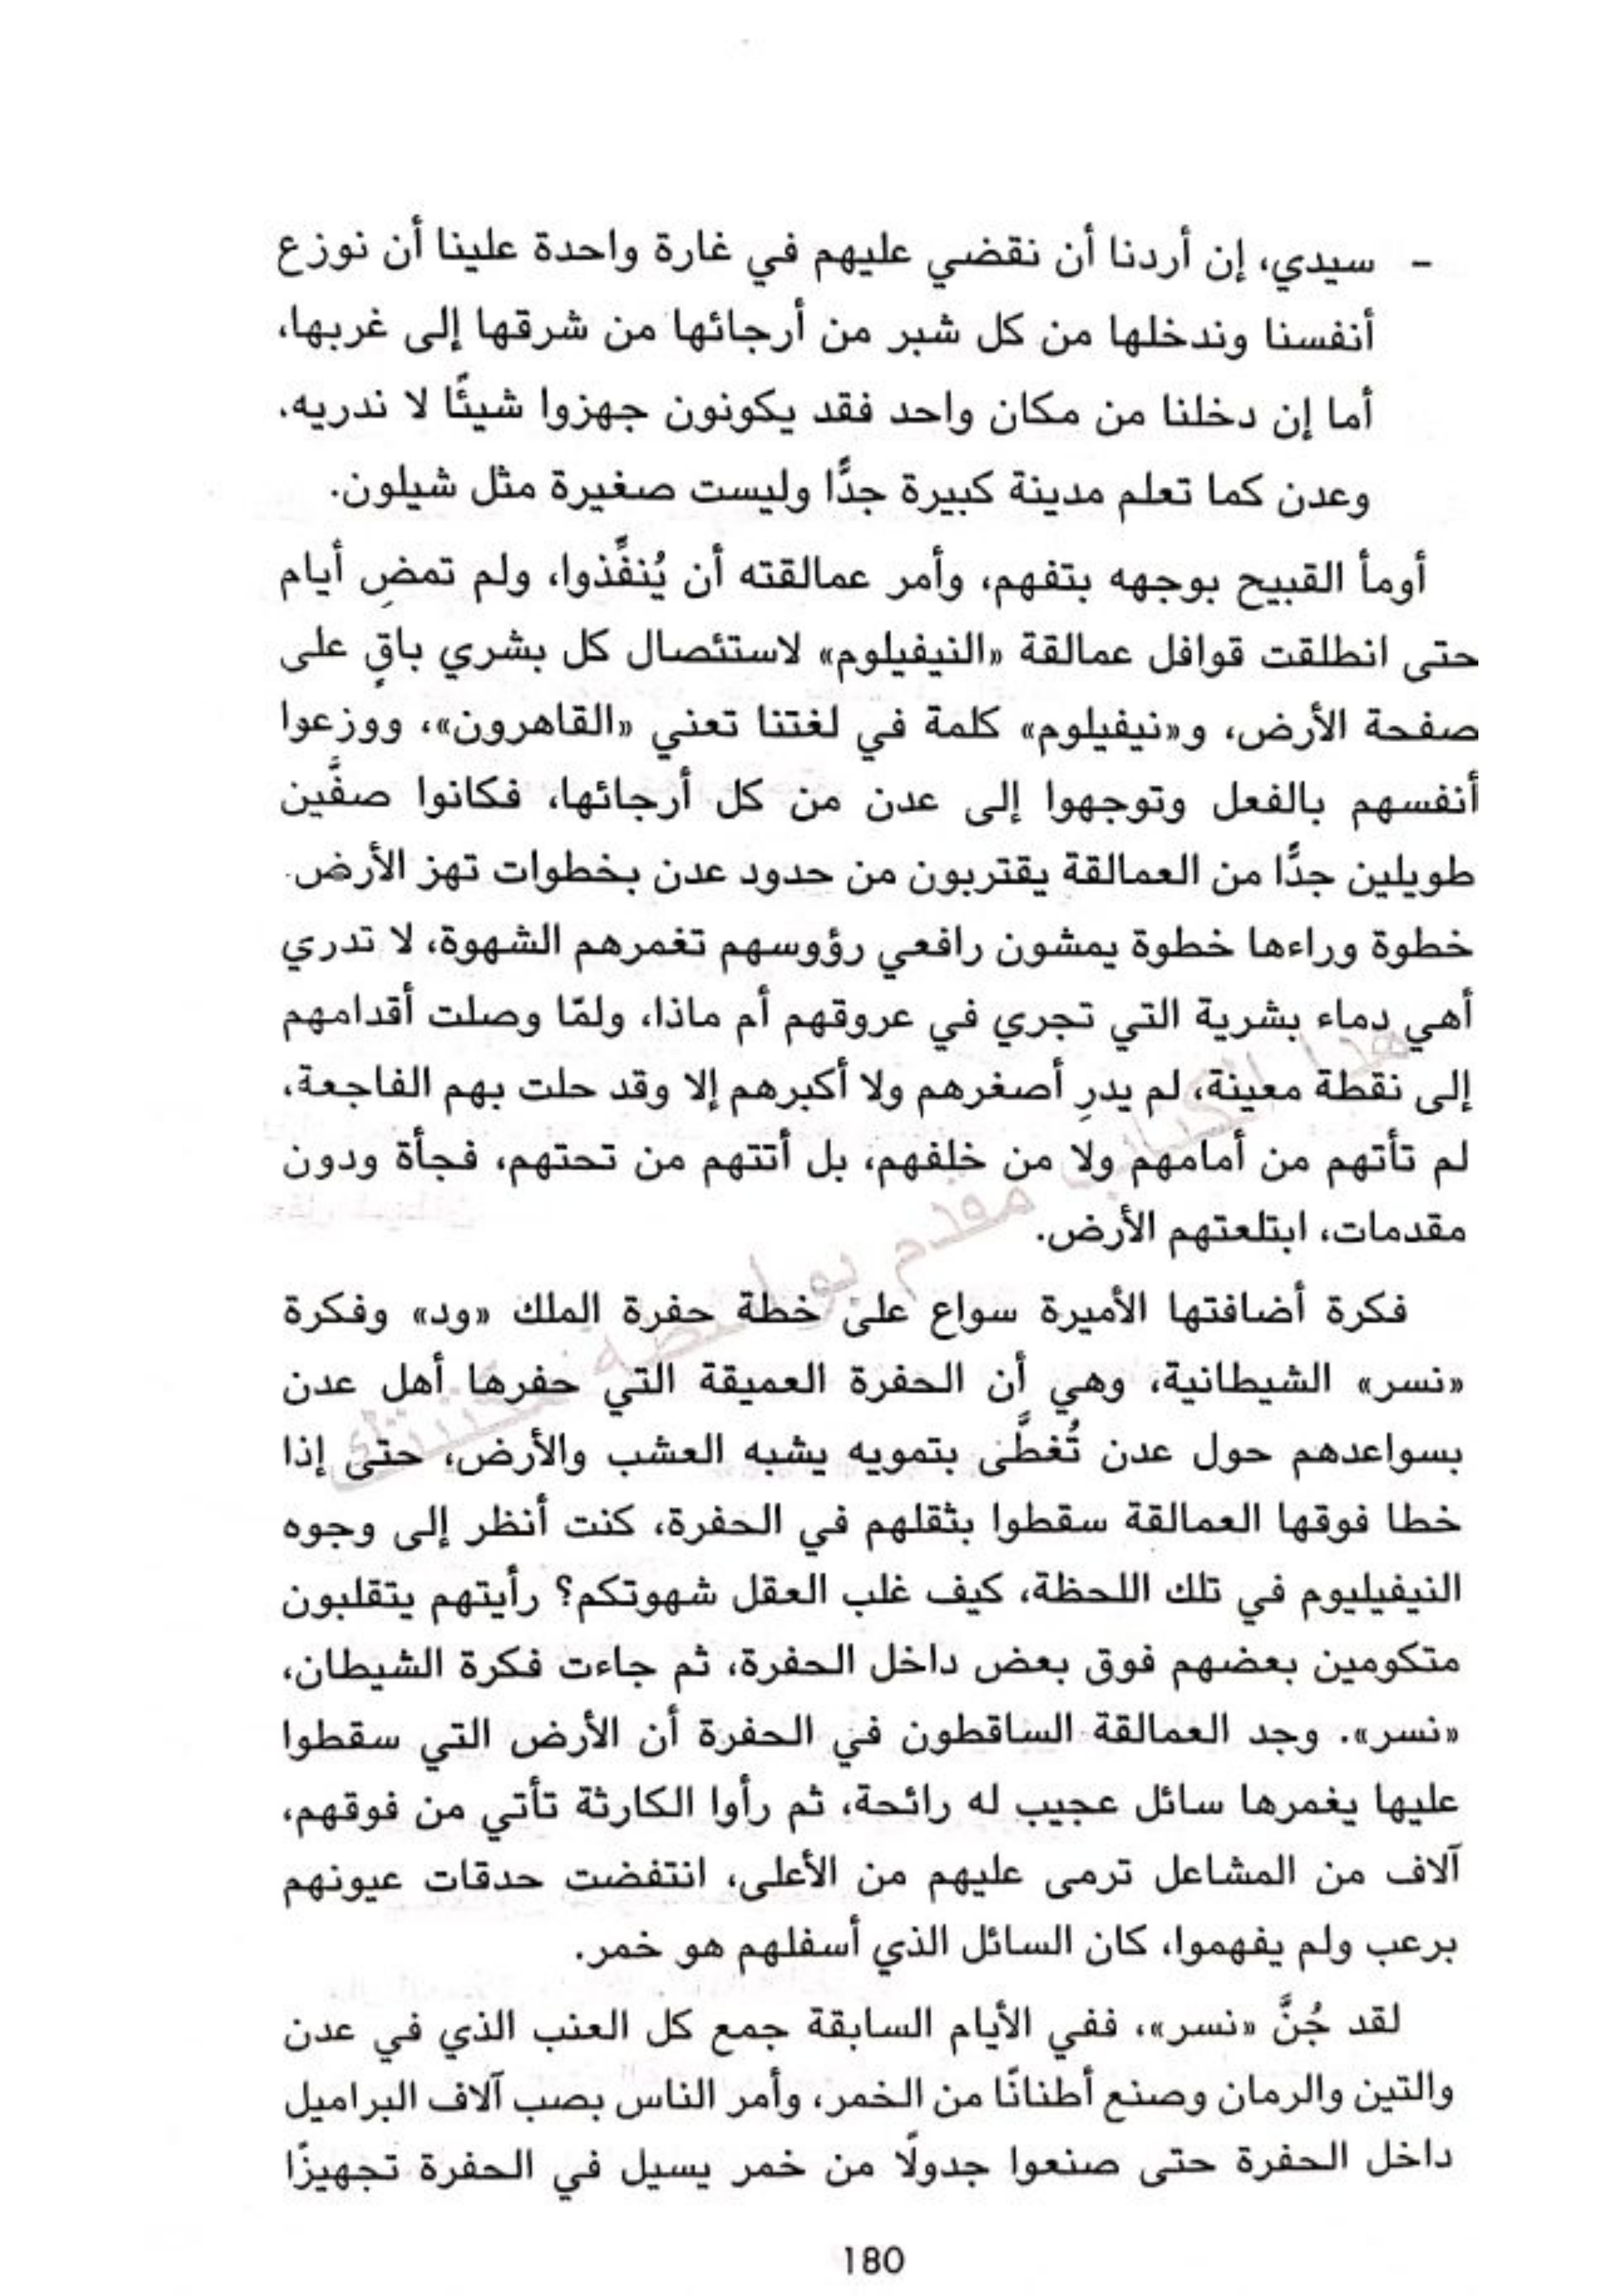 - سيدي، إن أردنا أن نقضي عليهم في غارة واحدة علينا أن نوزع
أنفسنا وندخلها من كل شبر من أرجائها من شرقها إلى غربها،
أما إن دخلنا من مكان واحد فقد يكونون جهزوا شيئًا لا ندريه.
وعدن كما تعلم مدينة كبيرة جدًّا وليست صغيرة مثل شيلون.
أومأ القبيح بوجهه بتفهم، وأمر عمالقته أن يُنفِّذوا، ولم تمضِ أيام
حتى انطلقت قوافل عمالقة «النيفيلوم» لاستئصال كل بشري باقٍ على
صفحة الأرض، و«نيفيلوم» كلمة في لغتنا تعني «القاهرون»، ووزعوا
أنفسهم بالفعل وتوجهوا إلى عدن من كل أرجائها، فكانوا صفَّين
طويلين جدًّا من العمالقة يقتربون من حدود عدن بخطوات تهز الأرض.
خطوة وراءها خطوة يمشون رافعي رؤوسهم تغمرهم الشهوة، لا تدري
أهي دماء بشرية التي تجري في عروقهم أم ماذا، ولمّا وصلت أقدامهم
إلى نقطة معينة، لم يدرِ أصغرهم ولا أكبرهم إلا وقد حلت بهم الفاجعة،
لم تأتهم من أمامهم ولا من خلفهم، بل أتتهم من تحتهم، فجأة ودون
مقدمات، ابتلعتهم الأرض.
فكرة أضافتها الأميرة سواع على خطة حفرة الملك «ود» وفكرة
«نسر» الشيطانية، وهي أن الحفرة العميقة التي حفرها أهل عدن
بسواعدهم حول عدن تُغطَّى بتمويه يشبه العشب والأرض، حتى إذا
خطا فوقها العمالقة سقطوا بثقلهم في الحفرة، كنت أنظر إلى وجوه
النيفيليوم في تلك اللحظة، كيف غلب العقل شهوتكم؟ رأيتهم يتقلبون
متكومين بعضهم فوق بعض داخل الحفرة، ثم جاءت فكرة الشيطان،
«نسر». وجد العمالقة الساقطون في الحفرة أن الأرض التي سقطوا
عليها يغمرها سائل عجيب له رائحة، ثم رأوا الكارثة تأتي من فوقهم،
آلاف من المشاعل ترمى عليهم من الأعلى، انتفضت حدقات عيونهم
برعب ولم يفهموا، كان السائل الذي أسفلهم هو خمر.
لقد جُنَّ «نسر»، ففي الأيام السابقة جمع كل العنب الذي في عدن
والتين والرمان وصنع أطنانًا من الخمر، وأمر الناس بصب آلاف البراميل
داخل الحفرة حتى صنعوا جدولًا من خمر يسيل في الحفرة تجهيزًا
180